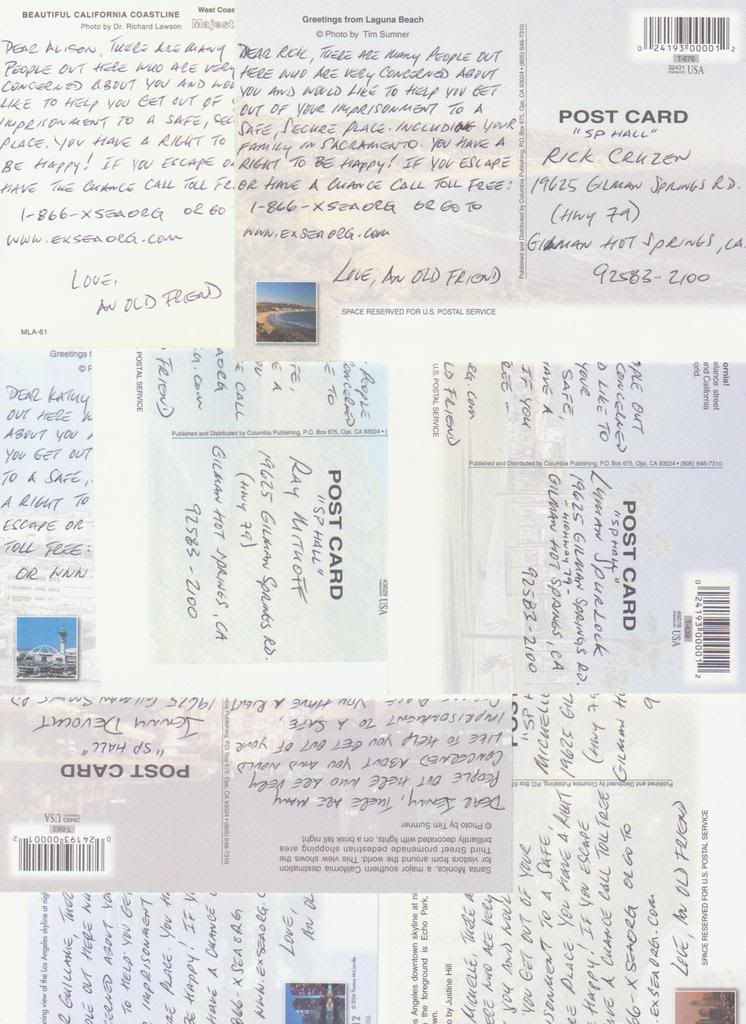 BEAUTIFUL CALIFORNIA COASTLINE
Photo by Dr. Richard Lawson
West Coas
Majest
DEAR ALISON, THERE ARE MANY
PEOPLE OUT HERE WHO ARE VERY
CONCERNED ABOUT YOU AND WOU
LIKE TO HELP YOU GET OUT OF
IMPRISONMENT TO A SAFE, SEC
PLACE. YOU HAVE A RIGHT TO
BE HAPPY! IF YOU ESCAPE O
HAVE THE CHANCE CALL TOLL FR
1-866-XSEAORG OR GO
WWW.EXSEAORG.COM
LOVE,
AN OLD FRIEND
MLA-61
Greetings from Laguna Beach
© Photo by Tim Sumner
DEAR RICK, THERE ARE MANY PEOPLE OUT
HERE WHO ARE VERY CONCERNED ABOUT
YOU AND WOULD LIKE TO HELP YOU GET
OUT OF YOUR IMPRISONMENT TO A
SAFE, SECURE PLACE. INCLUDING YOUR
FAMILY IN SACRAMENTO. YOU HAVE A
RIGHT TO BE HAPPY! IF YOU ESCAPE
OR HAVE A CHANCE CALL TOLL FREE:
1-866-XSEAORG OR GO TO
WWW.EXSEAORG.COM
LOVE, AN OLD FRIEND
SPACE RESERVED FOR U.S. POSTAL SERVICE
Published and Distributed by Columbia Publishing, P.O. Box 675, Ojai, CA 93024 • (805) 646-7310
0 24193 00001 2
T-676
32431 USA
POST CARD
"SP HALL"
RICK CRUZEN
19625 GILMAN SPRINGS RD.
(HWY 79)
GILMAN HOT SPRINGS, CA
92583-2100
Greetings f
DEAR KATHY
OUT HERE W
ABOUT YOU A
YOU GET OUT
TO A SAFE,
A RIGHT TO
ESCAPE OR
TOLL FREE:
OR WWW.
PEOPLE
CONCERNED
E TO
FE,
E A
OU
E CALL
AORG
G.COM
FRIEND
POSTAL SERVICE
Published and Distributed by Columbia Publishing, P.O. Box 675, Ojai, CA 93024 • (
POST CARD
"SP HALL"
RAY MITHOFF
19625 GILMAN SPRINGS RD.
(HWY 79)
GILMAN HOT SPRINGS, CA
92583-2100
USA
ornia!
elance street
and California
orld.
ARE OUT
CONCERNED
D LIKE TO
YOUR
SAFE,
AVE A
IF YOU
REE -
RG.COM
LD FRIEND
U.S. POSTAL SERVICE
Published and Distributed by Columbia Publishing, P.O. Box 675, Ojai, CA 93024 • (805) 646-7310
POST CARD
"SP HALL"
LYMAN SPURLOCK
19625 GILMAN SPRINGS RD.
- HIGHWAY 79 -
GILMAN HOT SPRINGS, CA
92583-2100
0 24193 00001 2
T-439
USA
Santa Monica, a major southern California destination
for visitors from around the world. This view shows the
Third Street promenade pedestrian shopping area
brilliantly decorated with lights, on a brisk fall night.
© Photo by Tim Sumner
DEAR JENNY, THERE ARE MANY
PEOPLE OUT HERE WHO ARE VERY
CONCERNED ABOUT YOU AND WOULD
LIKE TO HELP YOU GET OUT OF YOUR
IMPRISONMENT TO A SAFE,
SECURE PLACE. YOU HAVE A RIGHT
0 24193 00001 2
T-583
USA
POST CARD
"SP HALL"
JENNY DEVOCHT
19625 GILMAN SPRINGS RD
ning view of the Los Angeles skyline at nig
R GUILLAUME, THER
PLE OUT HERE WH
CERNED ABOUT YO
TO HELP YOU GET
IMPRISONMENT
RE PLACE. YOU H
BE HAPPY! IF Y
AVE A CHANCE C
866-XSEAORG,
WWW.EXSEAORG.C
LOVE,
AN OL
s Angeles downtown skyline at ni
the foreground is Echo Park,
own.
o by Justine Hill
MICHELLE, THERE A
ERE WHO ARE VERY
YOU AND WOUL
YOU GET OUT OF YOUR
ISONMENT TO A SAFE,
E PLACE. YOU HAVE A RIGHT
HAPPY! IF YOU ESCAPE
VE A CHANCE CALL TOLL FREE
6-XSEAORG OR GO TO
.EXSEAORG.COM
LOVE, AN OLD FRIEND
SPACE RESERVED FOR U.S. POSTAL SERVICE
Published and Distributed by Columbia Publishing, P.O. Box 67
"SP
MICHELLE
19625 GIL
(HWY 79
GILMAN H
9